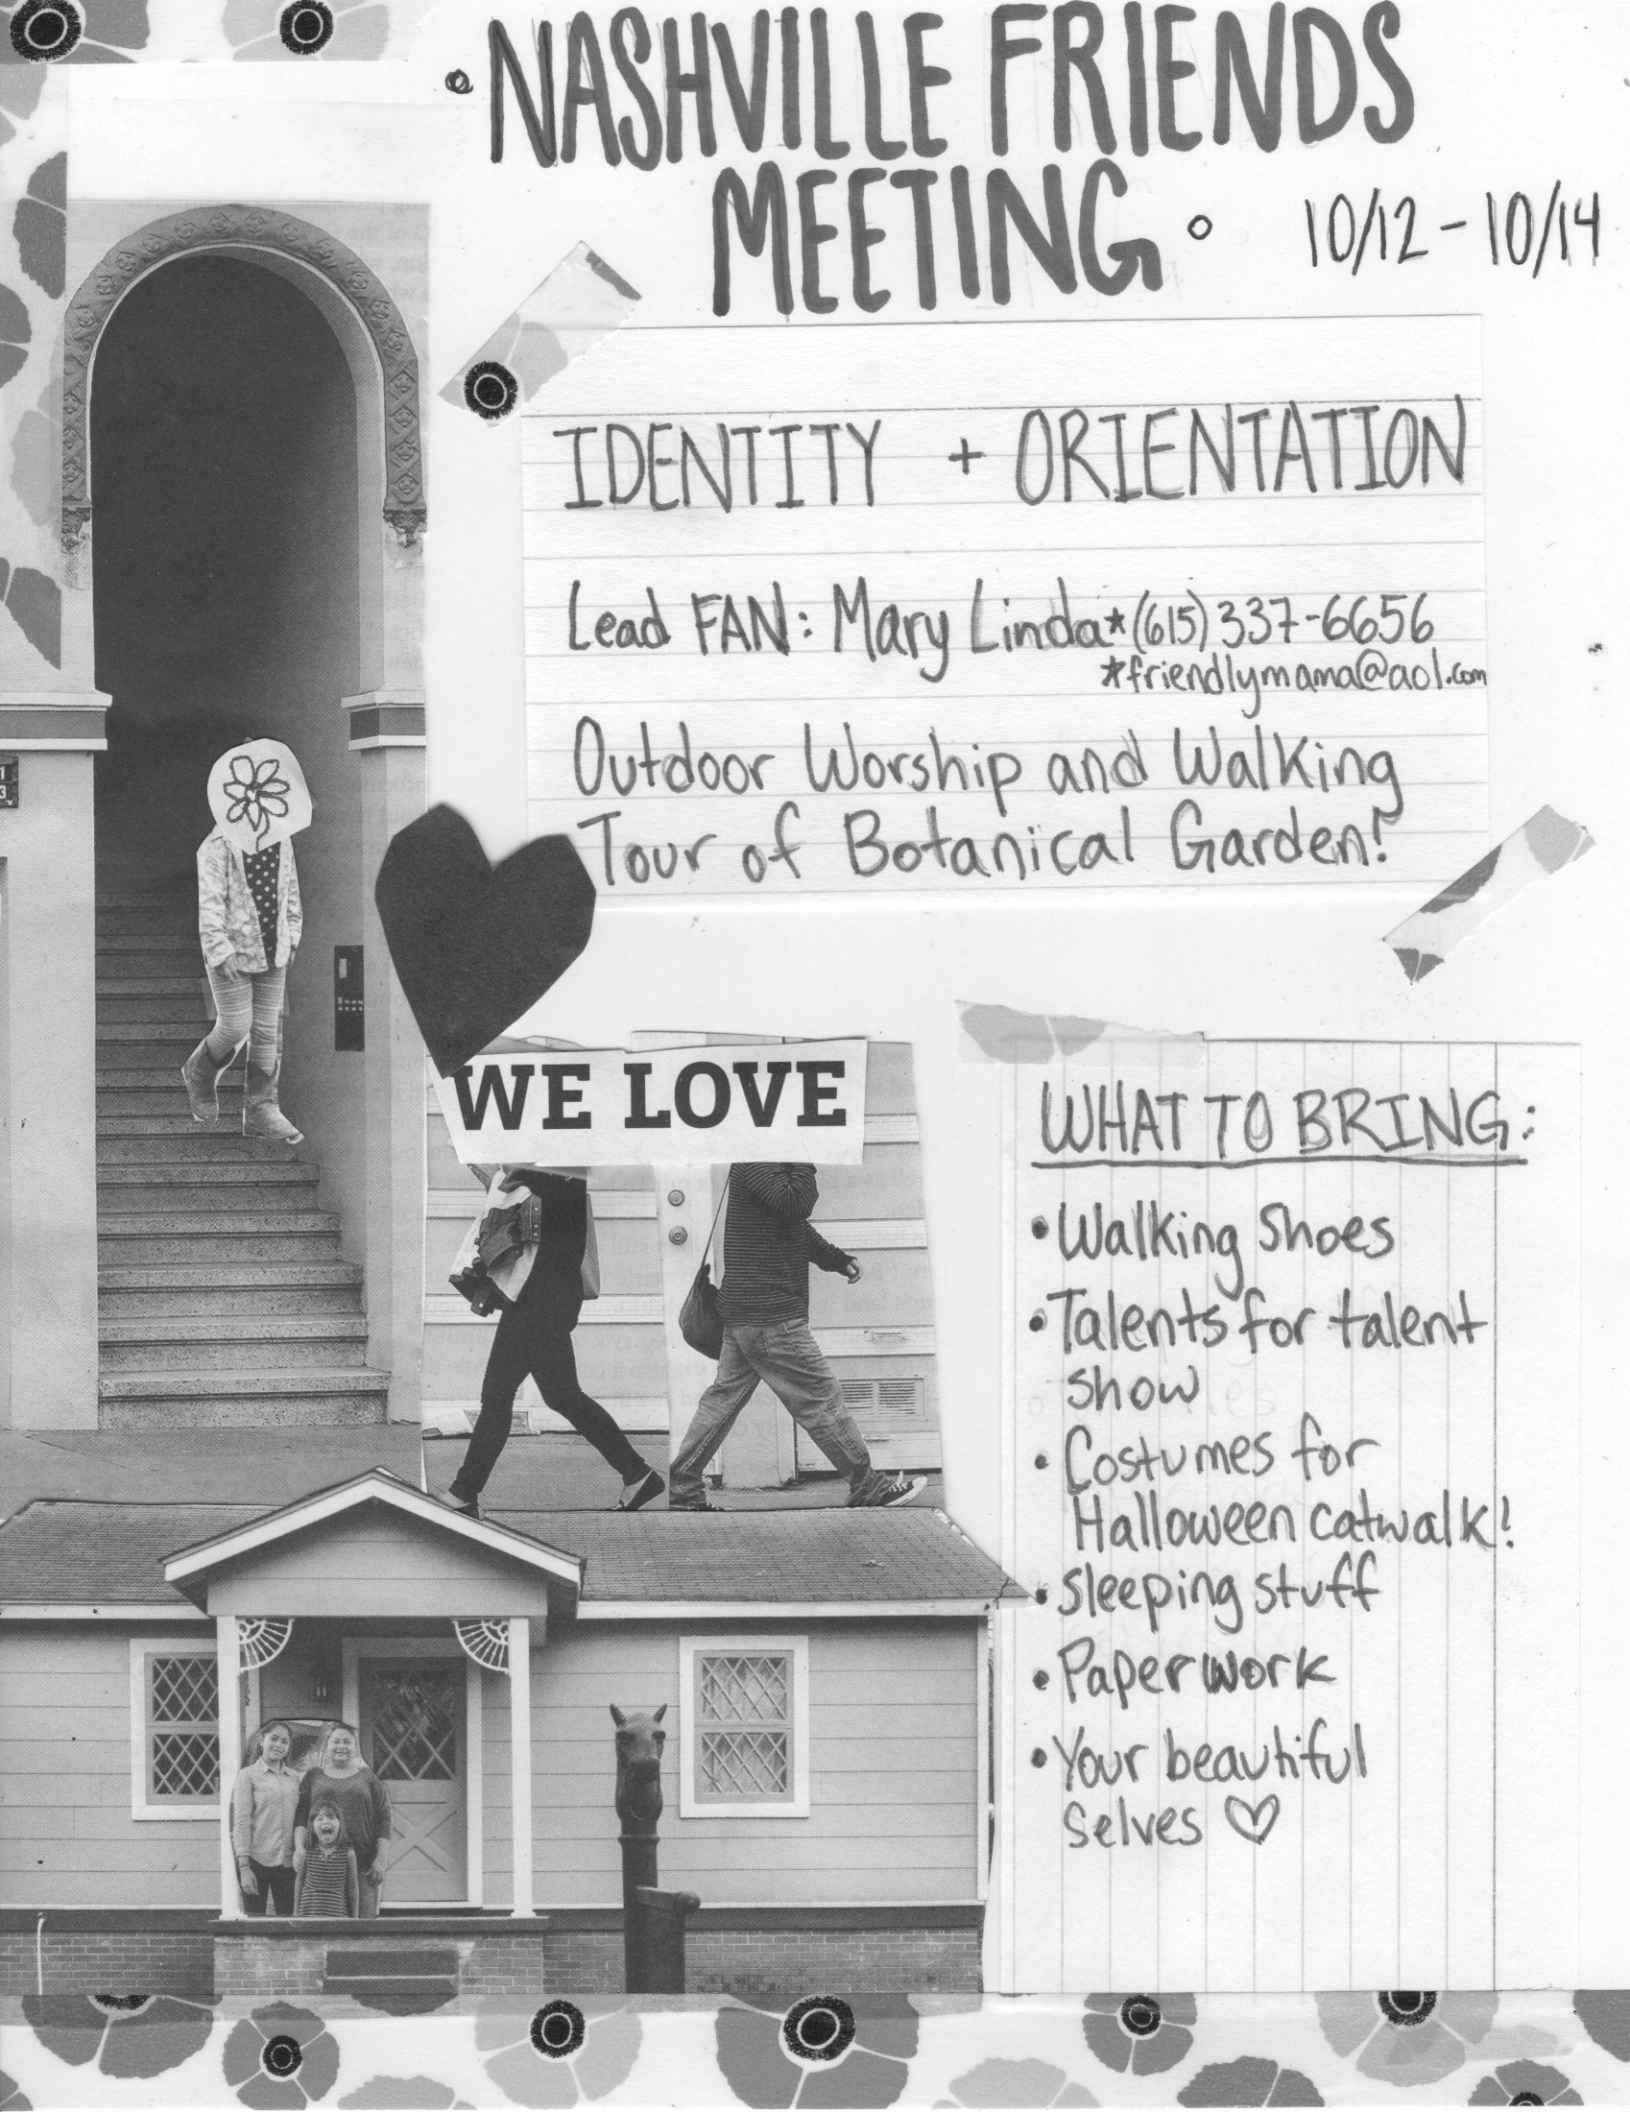 NASHVILLE FRIENDS
MEETING
10/12 - 10/14
IDENTITY + ORIENTATION
Lead FAN: Mary Linda *(615) 337-6656
*friendlymama@aol.com
Outdoor Worship and Walking
Tour of Botanical Garden!
WE LOVE
WHAT TO BRING:
• Walking Shoes
• Talents for talent
show
• Costumes for
Halloween catwalk!
• Sleeping stuff
• Paperwork
• Your beautiful
selves ♡